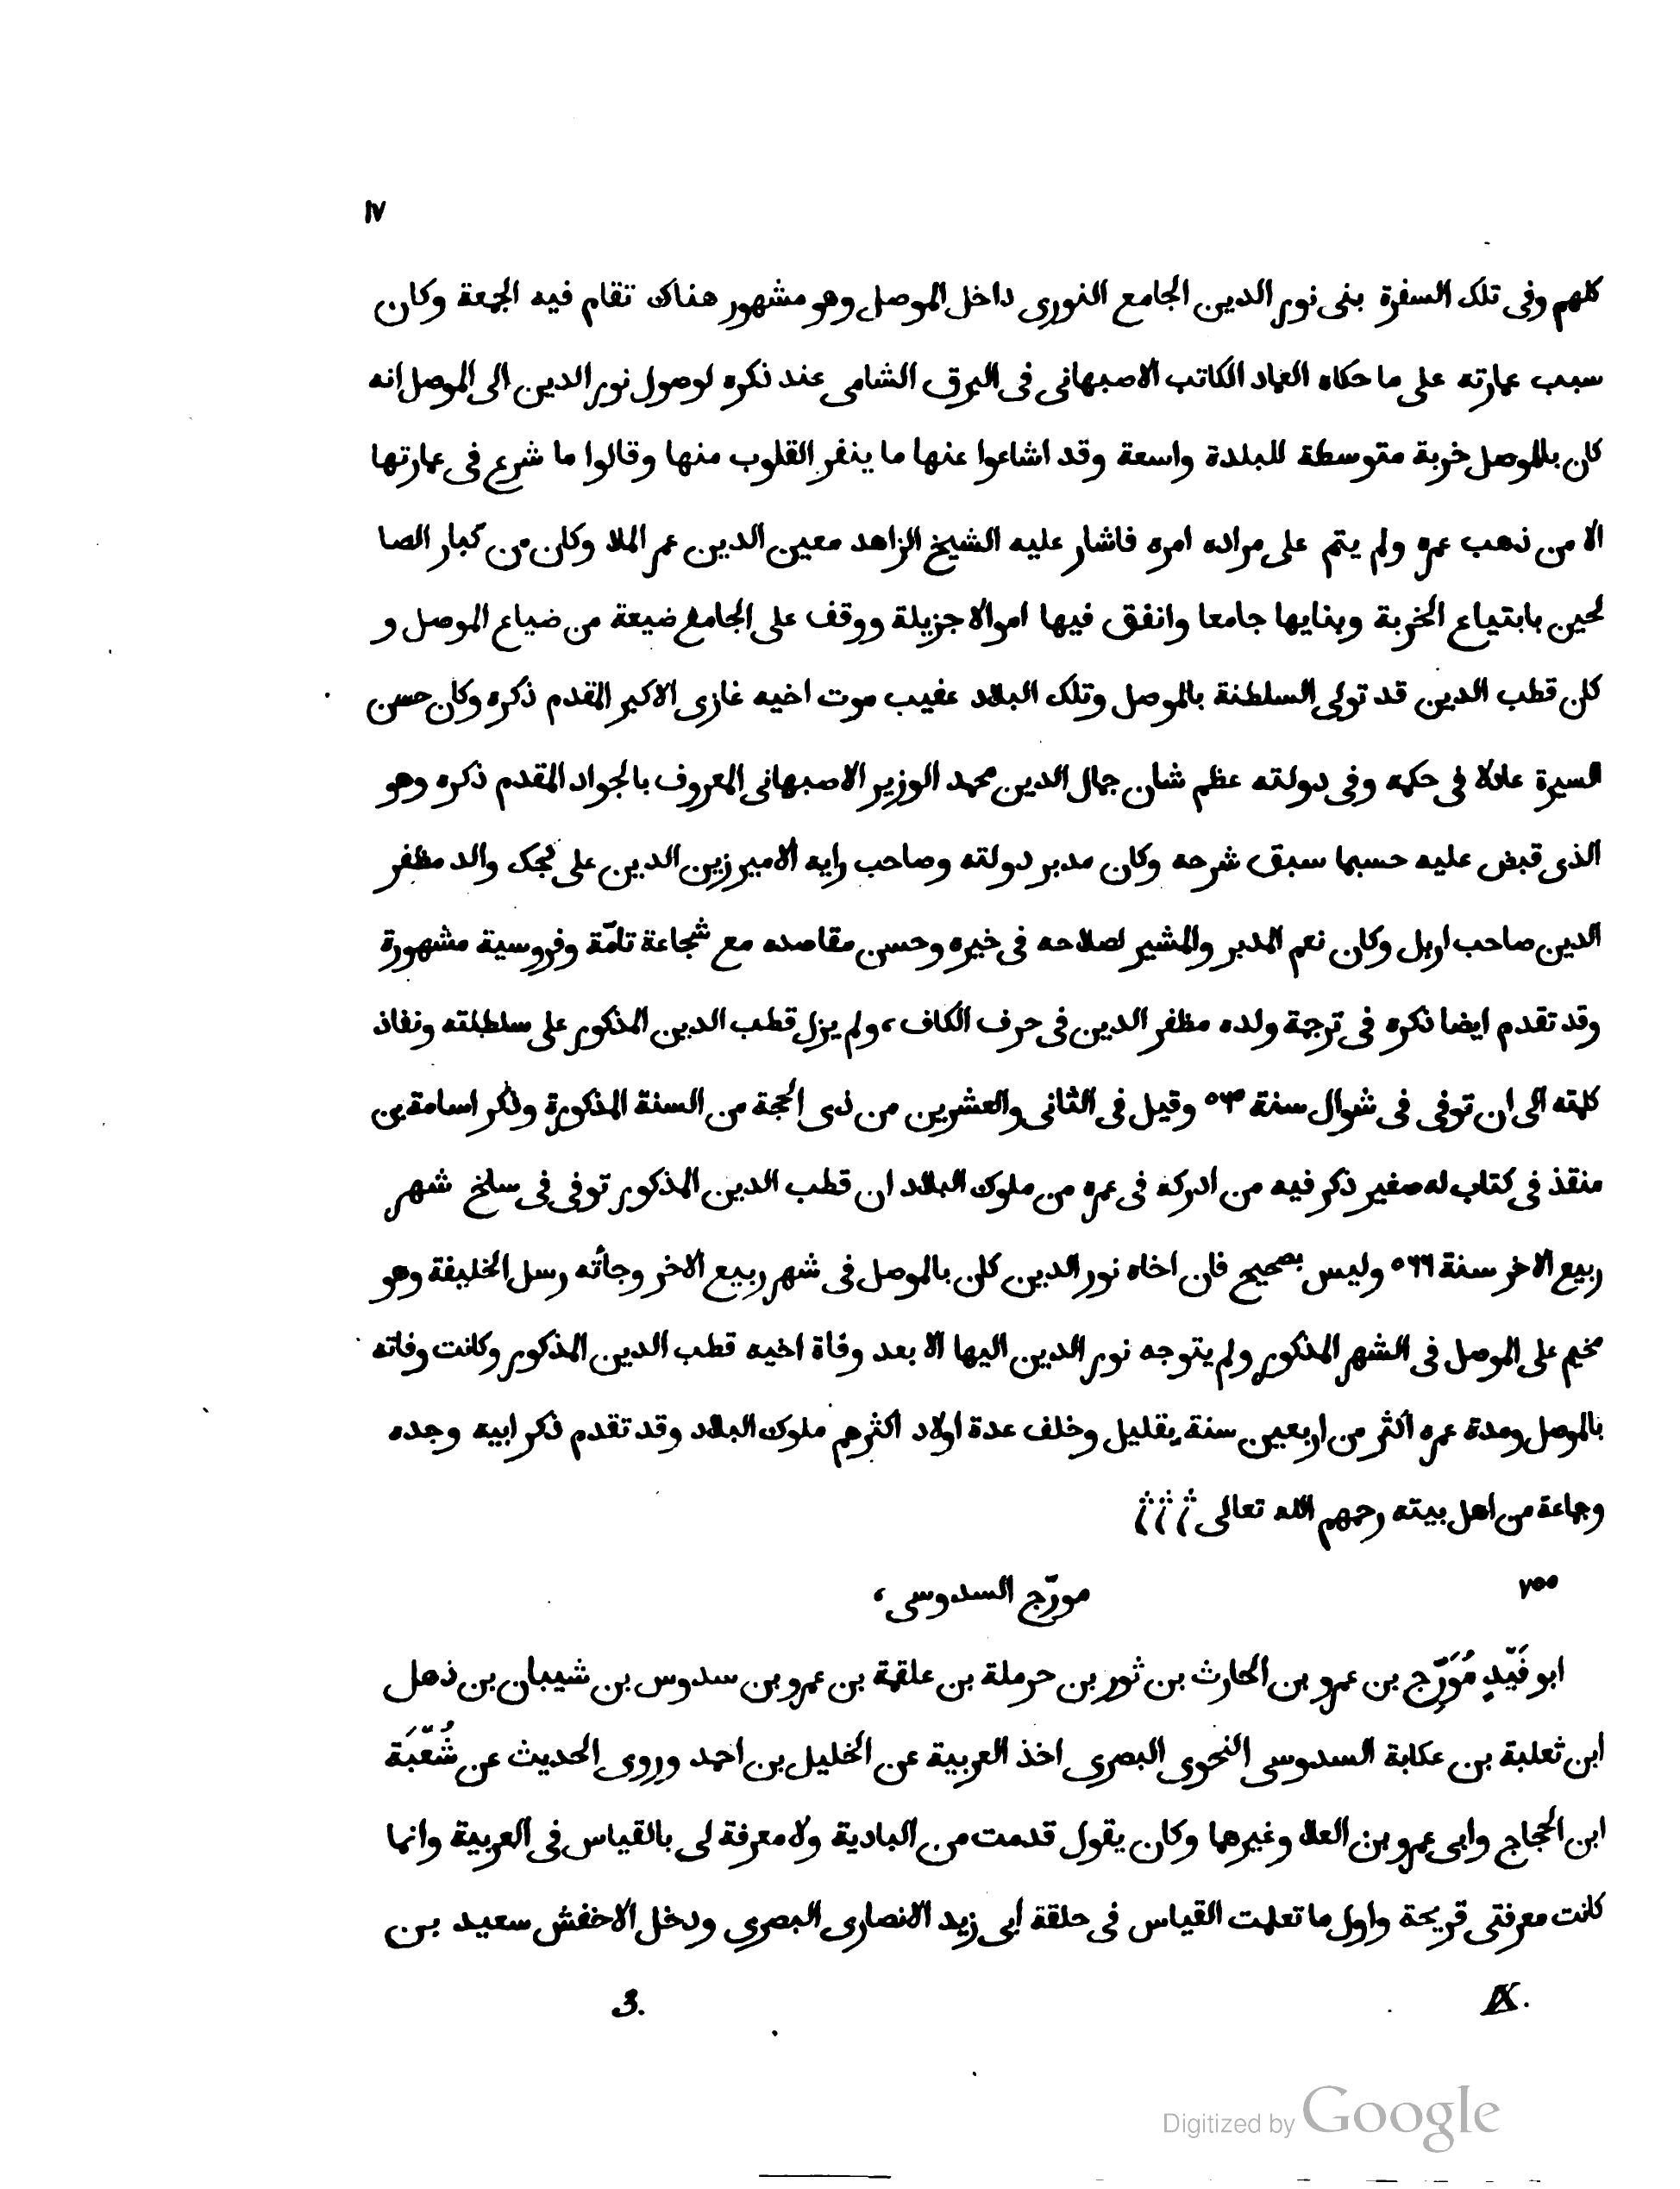 ١٧
كلهم وفى تلك السفرة بنى نور الدين الجامع النورى داخل الموصل وهو مشهور هناك تقام فيه الجمعة وكان
سبب عمارته على ما حكاه العماد الكاتب الاصبهانى فى البرق الشامى عند ذكره لوصول نور الدين الى الموصل انه
كان بالموصل خربة متوسطة للبلدة واسعة وقد اشاعوا عنها ما ينفر القلوب منها وقالوا ما شرع فى عمارتها
الا من ذهب عمره ولم يتم على مراده امره فاشار عليه الشيخ الزاهد معين الدين عمر الملا وكان من كبار الصا
لحين بابتياع الخربة وبنايها جامعا وانفق فيها اموالا جزيلة ووقف على الجامع ضيعة من ضياع الموصل و
كان قطب الدين قد تولى السلطنة بالموصل وتلك البلاد عقيب موت اخيه غازى الاكبر المقدم ذكره وكان حسن
السيرة عادلا فى حكمه وفى دولته عظم شان جمال الدين محمد الوزير الاصبهانى المعروف بالجواد المقدم ذكره وهو
الذى قبض عليه حسبما سبق شرحه وكان مدبر دولته وصاحب رايه الامير زين الدين على بجك والد مظفر
الدين صاحب اربل وكان نعم المدبر والمشير لصلاحه فى خيره وحسن مقاصده مع شجاعة تامّة وفروسية مشهورة
وقد تقدم ايضا ذكره فى ترجمة ولده مظفر الدين فى حرف الكاف، ولم يزل قطب الدين المذكور على سلطنته ونفاذ
كلمته الى ان توفى فى شوال سنة وقيل فى الثانى والعشرين من ذى الحجة من السنة المذكورة وذكر اسامة بن
منقذ فى كتاب له صغير ذكر فيه من ادركه فى عمره من ملوك البلاد ان قطب الدين المذكور توفى فى سلخ شهر
ربيع الاخر سنة ٥٦٦ وليس بصحيح فان اخاه نور الدين كان بالموصل فى شهر ربيع الاخر وجأته رسل الخليفة وهو
مخيم على الموصل فى الشهر المذكور ولم يتوجه نور الدين اليها الا بعد وفاة اخيه قطب الدين المذكور وكانت وفاته
بالموصل ومدة عمره اكثر من اربعين سنة بقليل وخلف عدة اولاد اكثرهم ملوك البلاد وقد تقدم ذكر ابيه وجده
وجماعة من اهل بيته رحمهم الله تعالى
٧٥٥ مورّج السدوسى،
ابو فَيْدٍ مُوَرِّج بن عمرو بن الحارث بن ثور بن حرملة بن علقمة بن عمرو بن سدوس بن شيبان بن ذهل
ابن ثعلبة بن عكابة السدوسى النحوى البصرى اخذ العربية عن الخليل بن احمد وروى الحديث عن شُعْبَة
ابن الحجاج وابى عمرو بن العلا وغيرهما وكان يقول قدمت من البادية ولا معرفة لى بالقياس فى العربية وانما
كانت معرفتى قريحة واول ما تعلمت القياس فى حلقة ابى زيد الانصارى البصرى ودخل الاخفش سعيد بن
3.
Digitized by Google